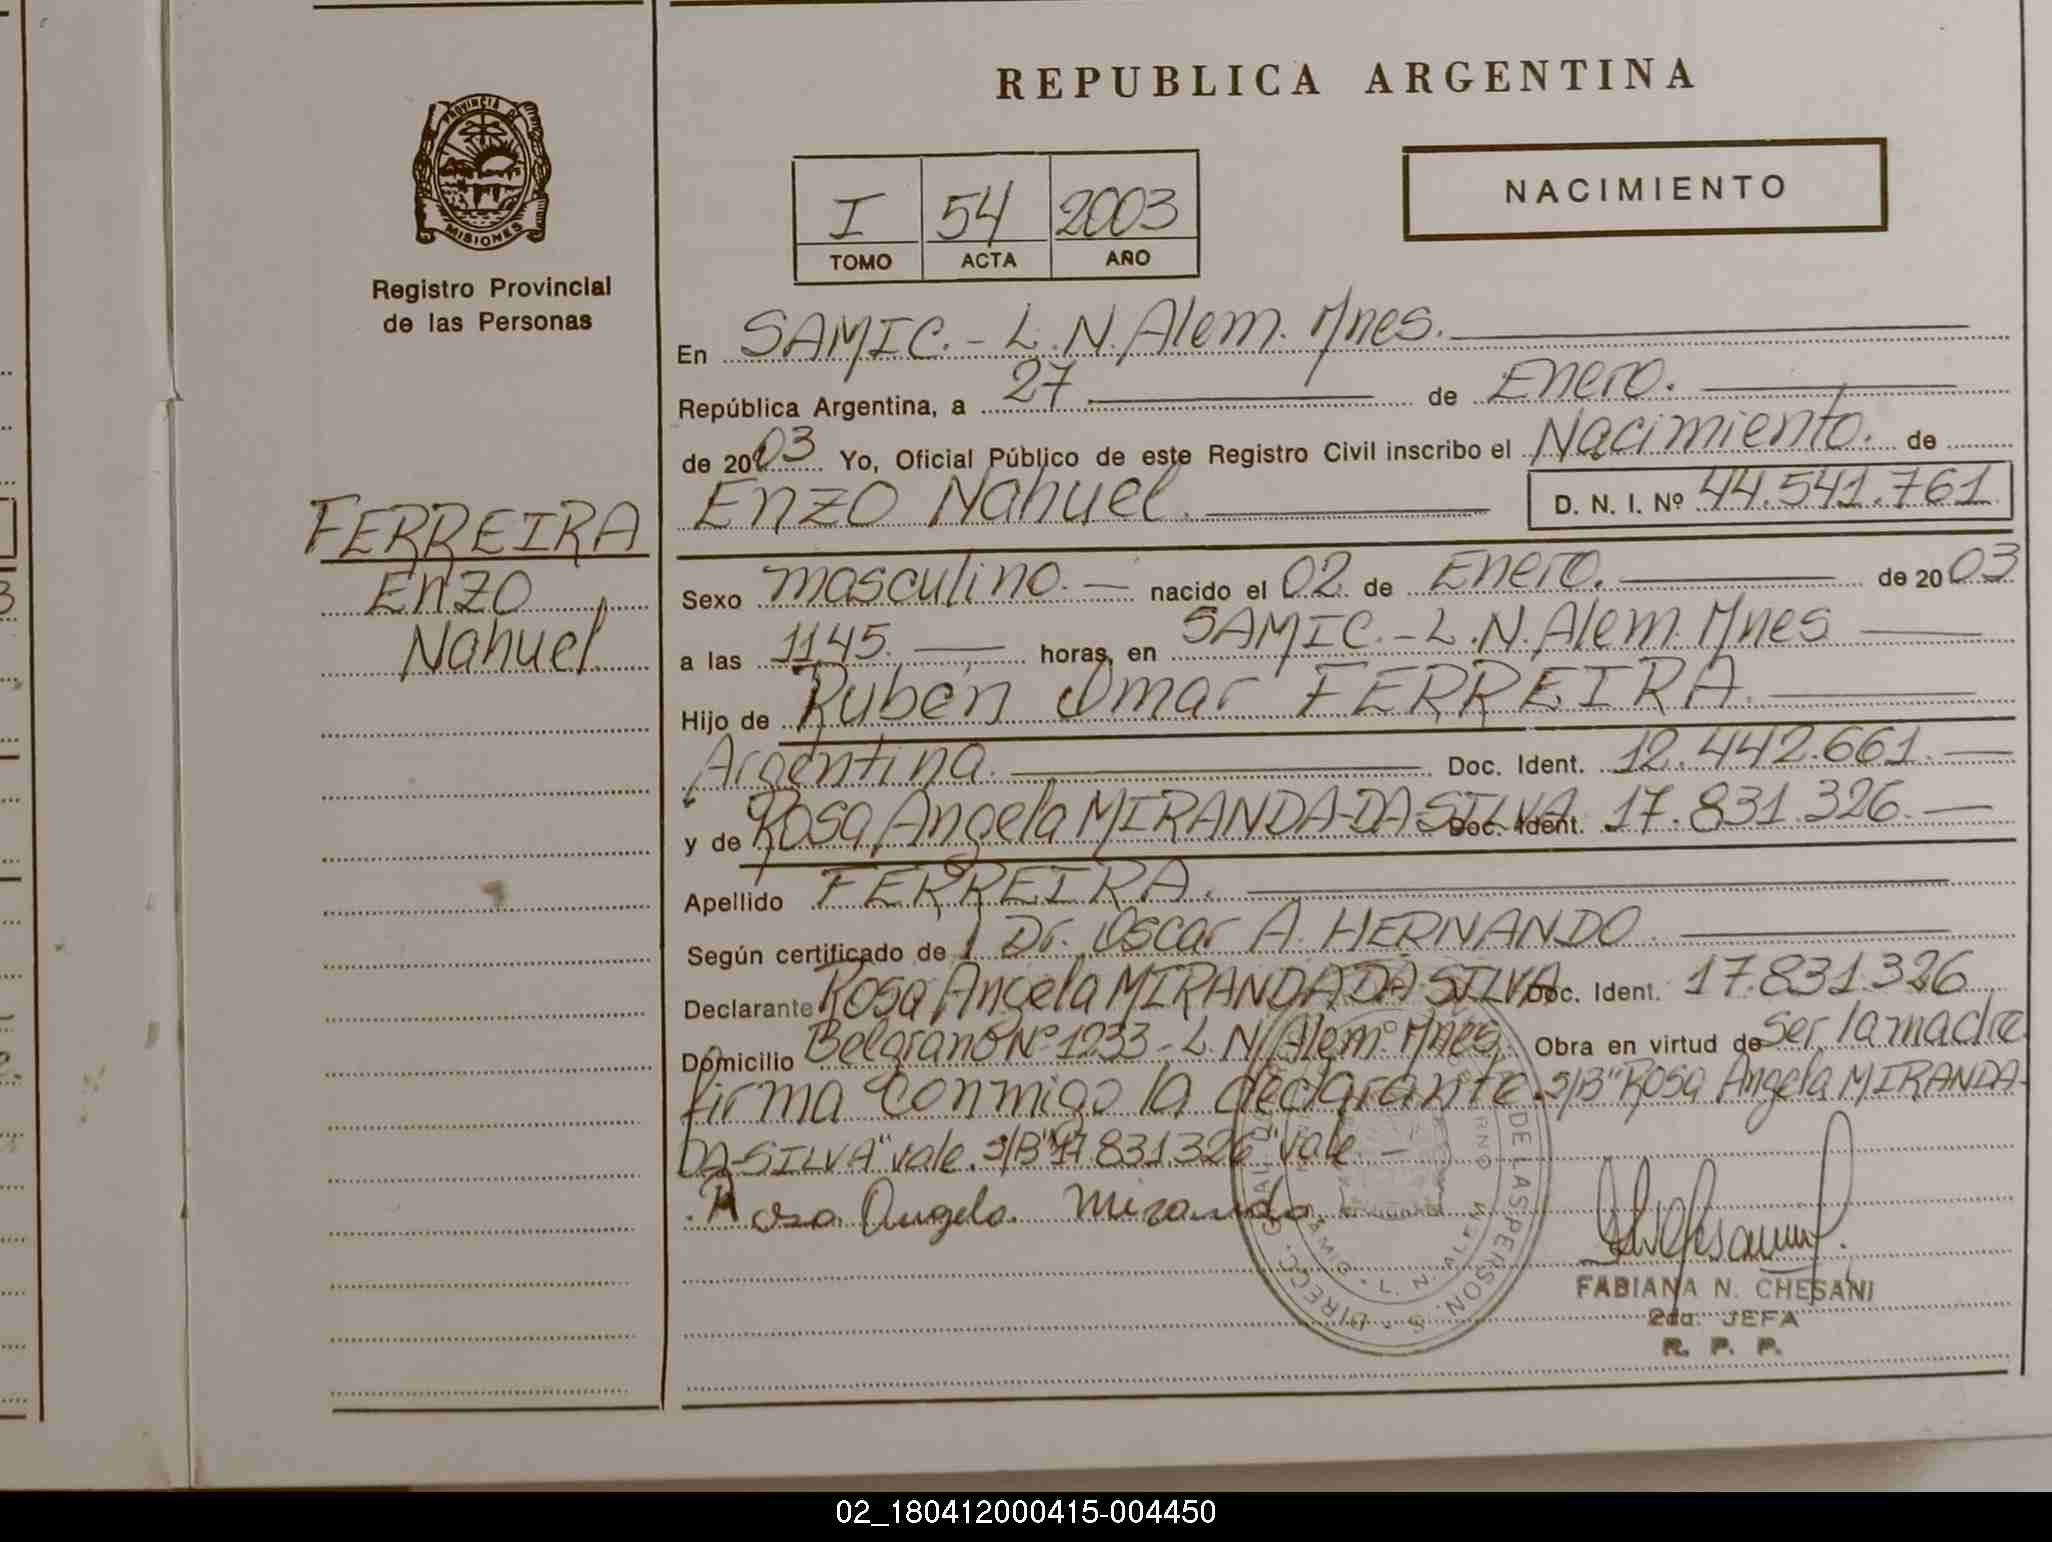 REPUBLICA ARGENTINA
PROVINCIA DE
MISIONES
Registro Provincial
de las Personas
I 54 2003
TOMO ACTA AÑO
NACIMIENTO
En SAMIC.- L.N.Alem. Mnes.
República Argentina, a 27 de Enero.
de 2003 Yo, Oficial Público de este Registro Civil inscribo el Nacimiento. de
Enzo Nahuel. D. N. I. Nº 44.541.761
FERREIRA
Enzo
Nahuel
Sexo masculino.- nacido el 02 de Enero. de 2003
a las 1145. horas, en SAMIC.-L.N.Alem. Mnes
Hijo de Rubén Omar FERREIRA.
Argentina. Doc. Ident. 12.442.661.-
y de Rosa Angela MIRANDA-DA-SILVA Doc. Ident. 17.831.326.-
Apellido FERREIRA.
Según certificado de Dr. Oscar A. HERNANDO.
Declarante Rosa Angela MIRANDA DA-SILVA Doc. Ident. 17.831.326
Domicilio Belgrano Nº 1233-L.N.Alem. Mnes. Obra en virtud de Ser la madre
firma conmigo la declarante. S/B "Rosa Angela MIRANDA-
DA-SILVA" vale. S/B "17.831.326" vale.-
Rosa Angela Miranda
DE LAS PERSON.
L. N. ALEM
FABIANA N. CHESANI
2da. JEFA
R. P. P.
02_180412000415-004450